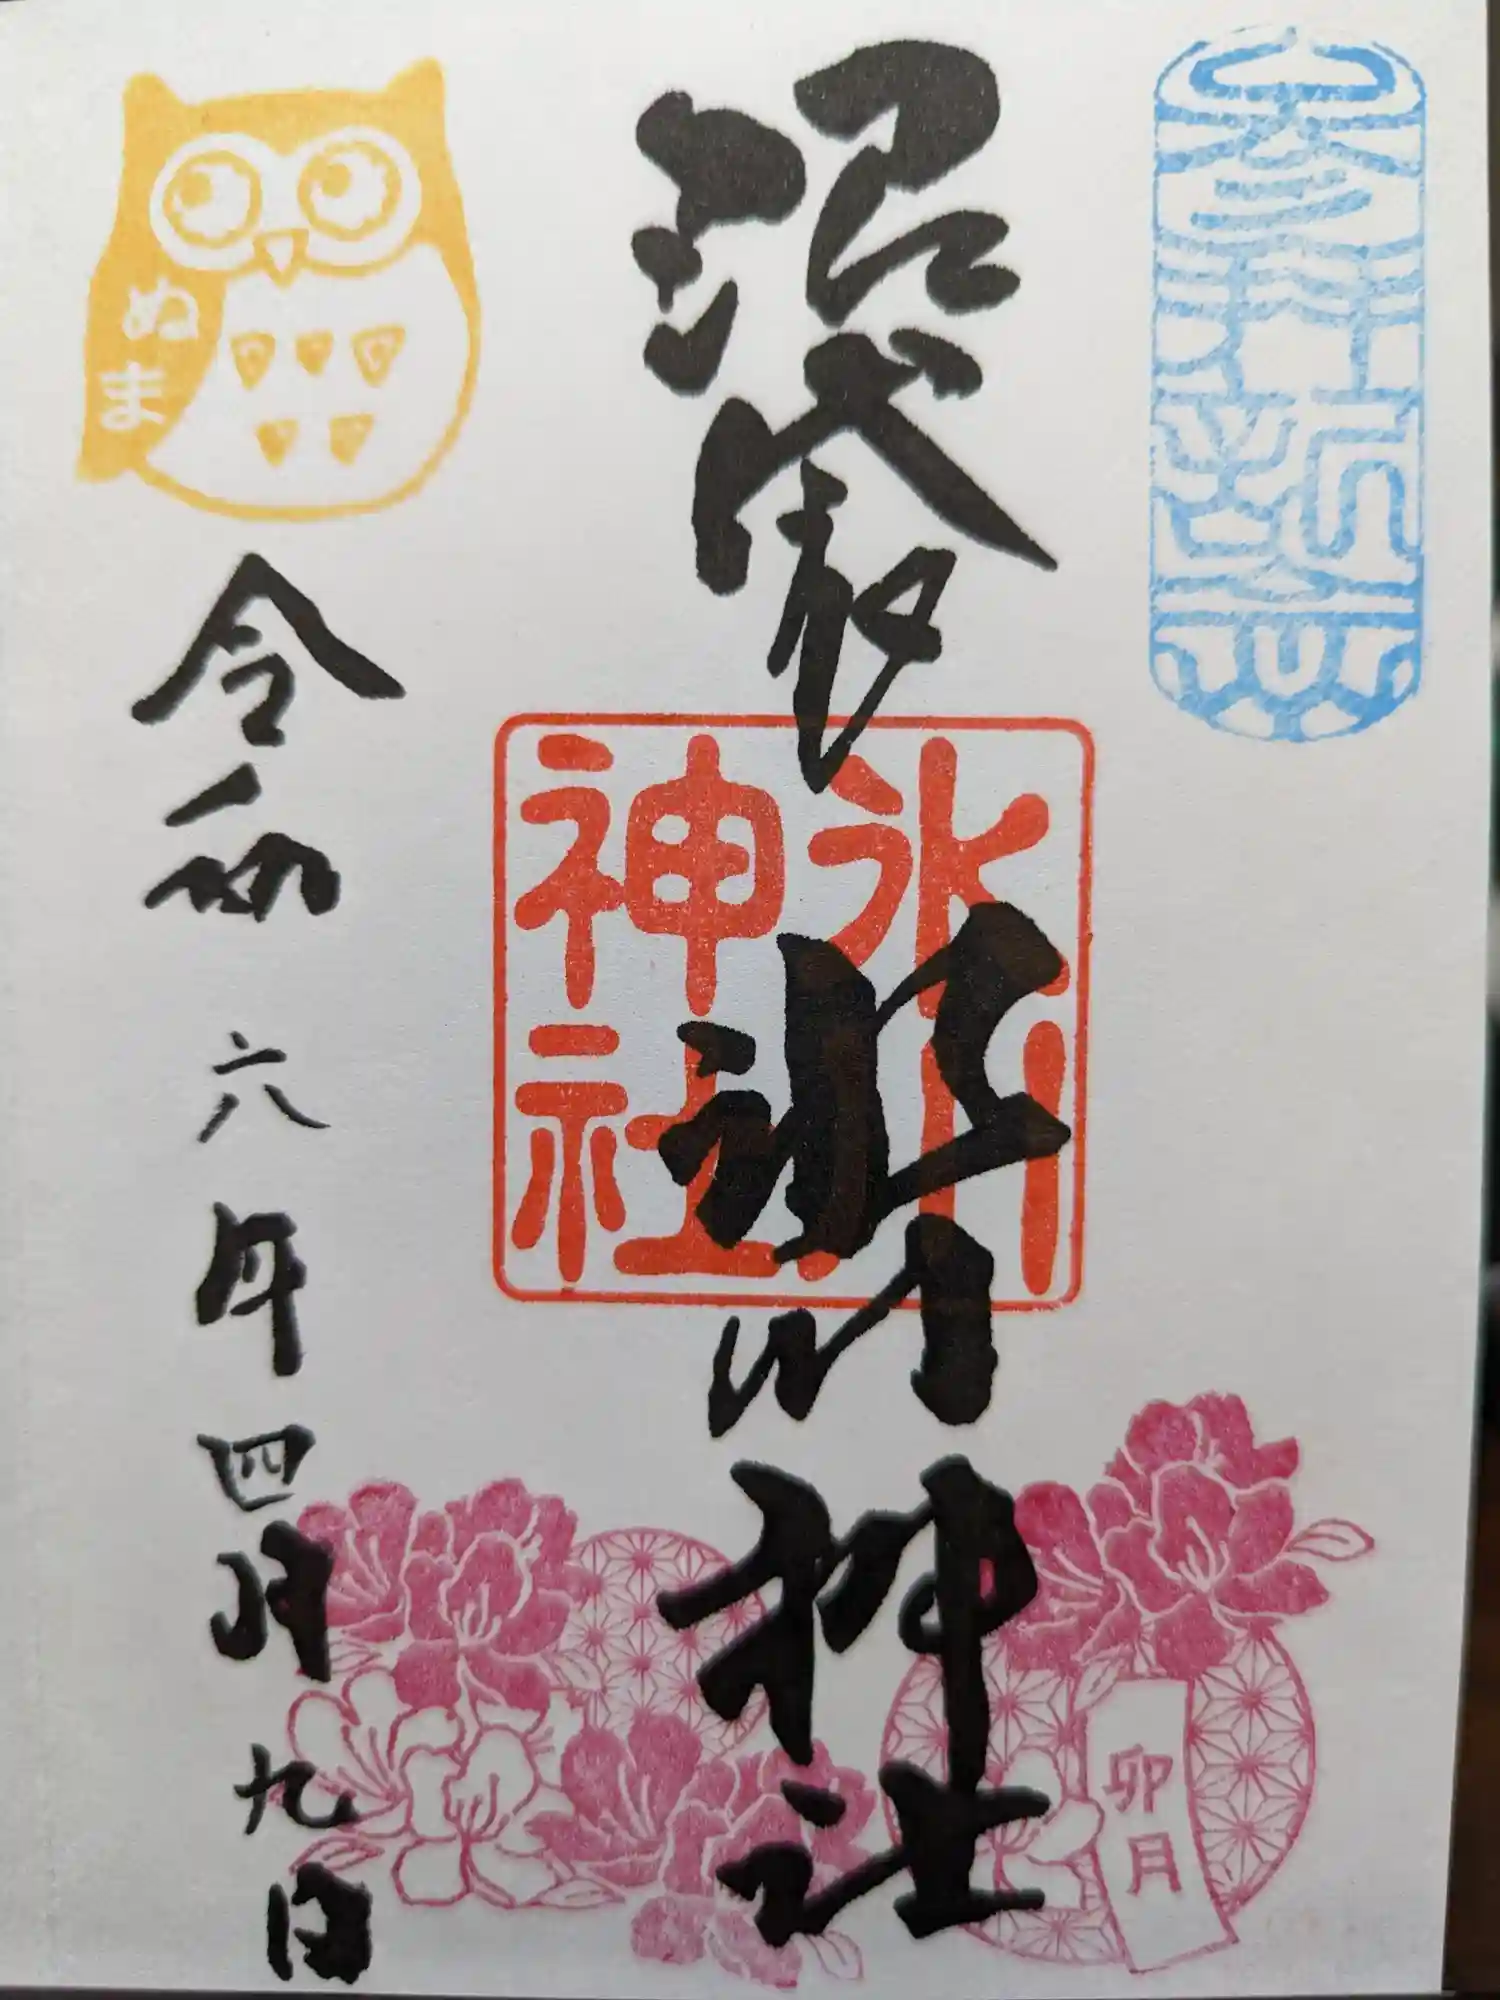 沼袋氷川神社
氷川
神社
令和六年四月九日
ぬま
卯月